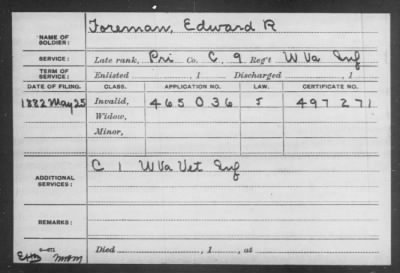 NAME OF SOLDIER: Foreman, Edward R
SERVICE: Late rank, Pri Co. C, 9 Reg't W Va Inf
TERM OF SERVICE: Enlisted , 1 Discharged , 1
DATE OF FILING. CLASS. APPLICATION NO. LAW. CERTIFICATE NO.
1882 May 25 Invalid, 465036 J 497271
Widow,
Minor,
ADDITIONAL SERVICES: C 1 W Va Vet Inf
REMARKS:
Died , 1 , at